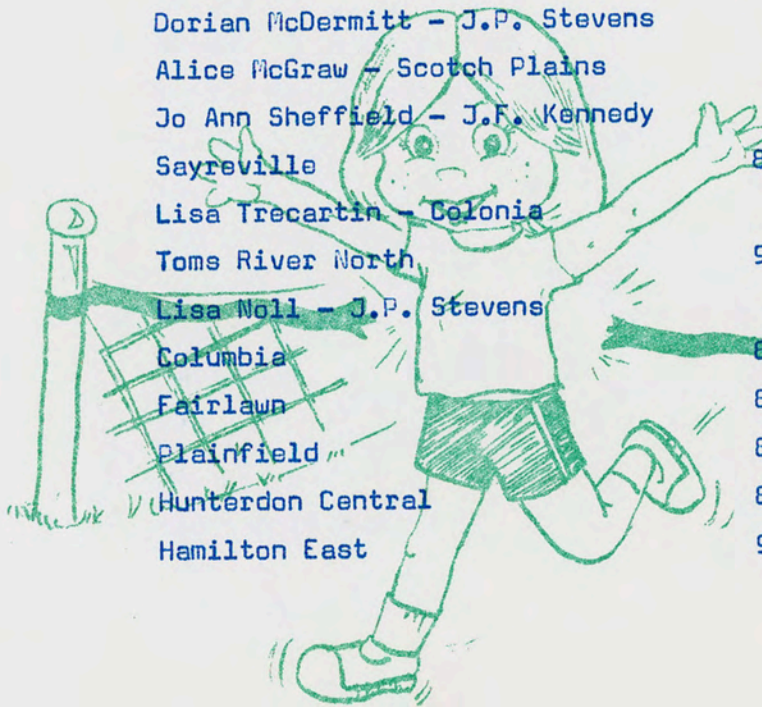 Dorian McDermitt - J.P. Stevens
Alice McGraw - Scotch Plains
Jo Ann Sheffield - J.F. Kennedy
Sayreville 8
Lisa Trecartin - Colonia
Toms River North 9
Lisa Noll - J.P. Stevens
Columbia 8
Fairlawn 8
Plainfield 8
Hunterdon Central 8
Hamilton East 9